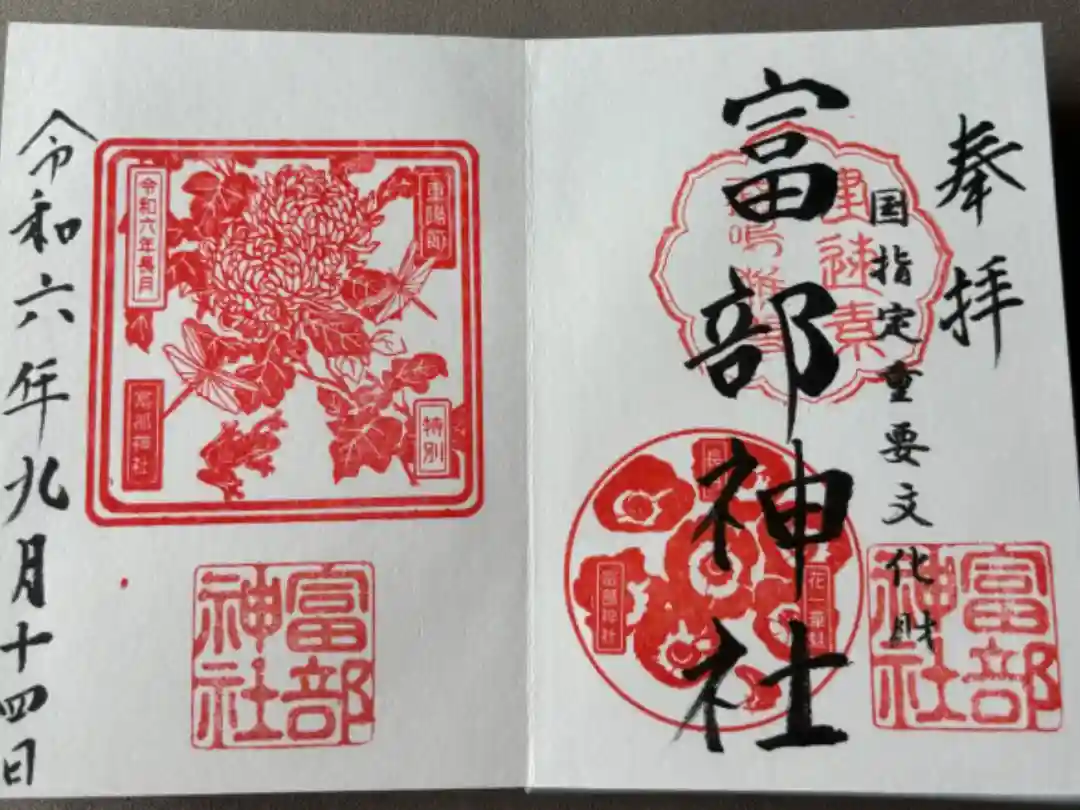 奉拝
国指定重要文化財
富部神社
建速素
富部神社
富部神社
重陽節
特別
令和六年長月
富部神社
富部神社
令和六年九月十四日